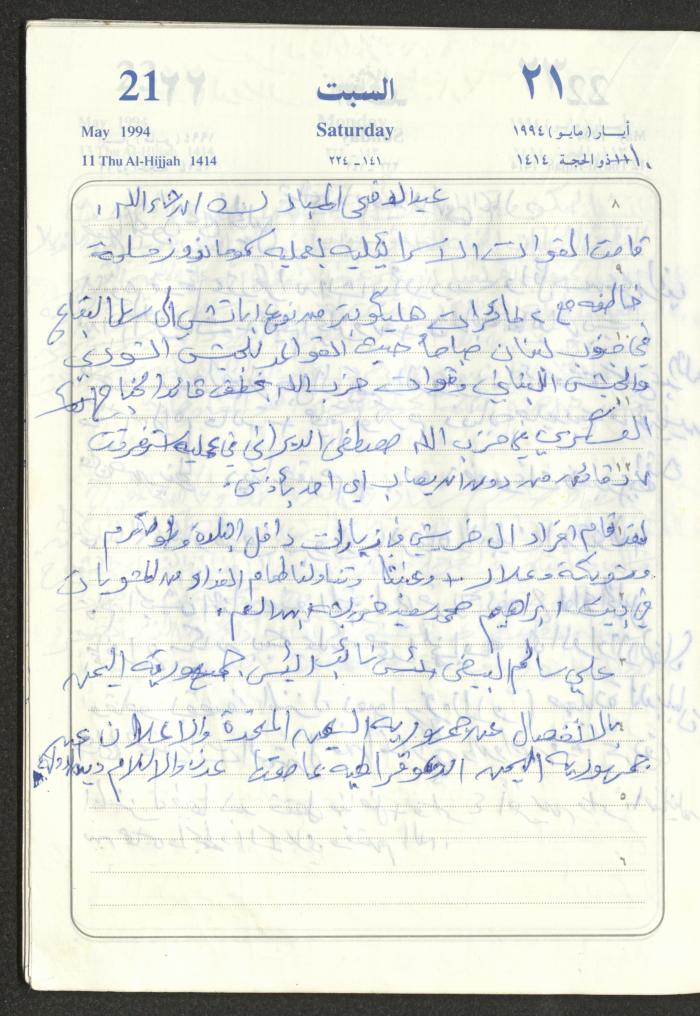 21 السبت ٢١
May 1994 Saturday أيار (مايو) ١٩٩٤
11 Thu Al-Hijjah 1414 ١٤١ - ٢٢٤ ذو الحجة ١٤١٤
عيد الاضحى المبارك ان شاء الله .
٨
قامت القوات الاسرائيلية بعملية كوماندوز
٩
خاطفه مع طائرات هليكوبتر من نوع اباتشي الى البقاع
في لبنان صباحاً حيث القواعد للجيش السوري
والجيش اللبناني وقوات حزب الله بخطف قائد الجناح
العسكري في حزب الله مصطفى الديراني في عملية استغرقت
دقائق من دون ان يصاب اي احد بأذى .
لقد قام افراد ال بزيارات داخل البلدة
وعلار وتناولنا طعام الغداء من المشويات
في بيت ابراهيم محمد سعيد ابن العم .
٣
علي سالم البيض نائب الرئيس جمهورية اليمن
بالانفصال عن جمهورية اليمن المتحدة والاعلان عن
جمهورية اليمن الديموقراطية عاصمتها عدن والاسلام دين الدولة
٥
٦